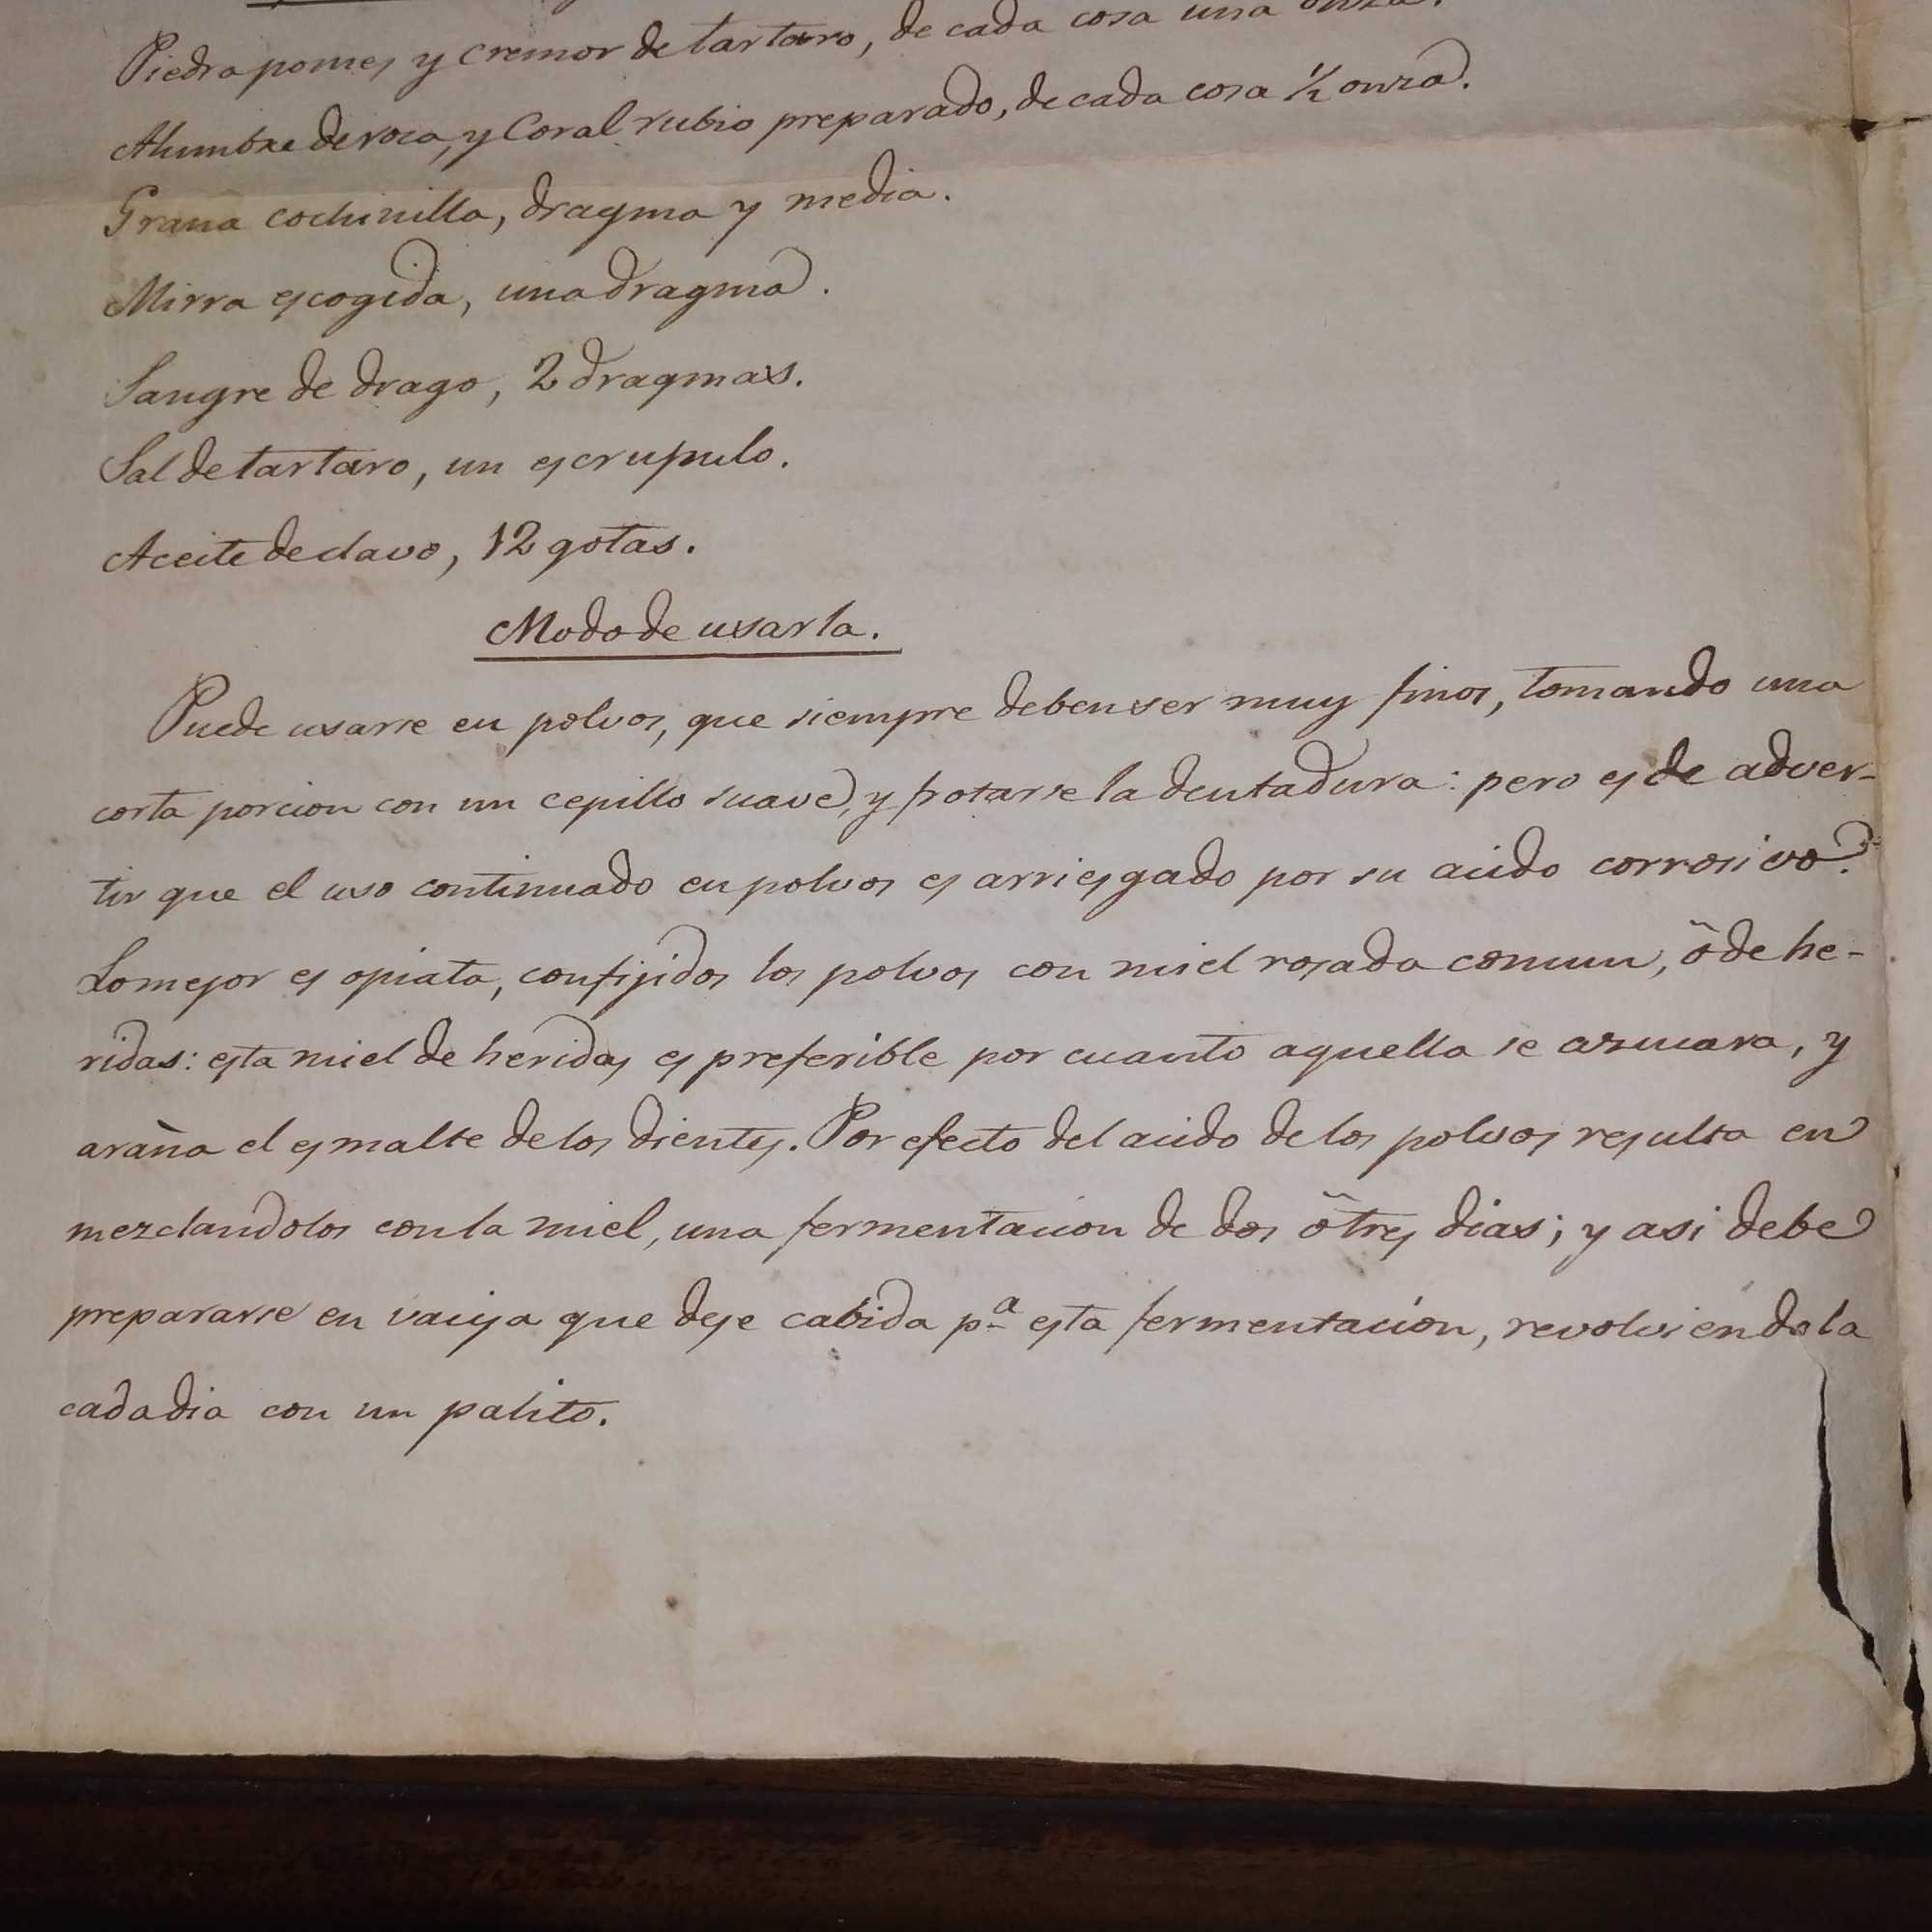 Piedra pomes y cremor de tartaro, de cada cosa una onza.
Alumbre de roca, y Coral rubio preparado, de cada cosa ½ onza.
Grana cochinilla, dragma y media.
Mirra escogida, una dragma.
Sangre de drago, 2 dragmas.
Sal de tartaro, un escrupulo.
Aceite de clavo, 12 gotas.
Modo de usarla.
Puede usarse en polvos, que siempre deben ser muy finos, tomando una
corta porcion con un cepillo suave, y frotarse la dentadura: pero es de adver-
tir que el uso continuado en polvos es arriesgado por su acido corrosivo.
Lo mejor es opiata, confijidos los polvos con miel rosada comun, ô de he-
ridas: esta miel de heridas es preferible por cuanto aquella se azucara, y
araña el esmalte de los dientes. Por efecto del acido de los polvos resulta en
mezclandolos con la miel, una fermentacion de dos ô tres dias; y asi debe
prepararse en vacija que deje cabida pª esta fermentacion, revolviendola
cada dia con un palito.